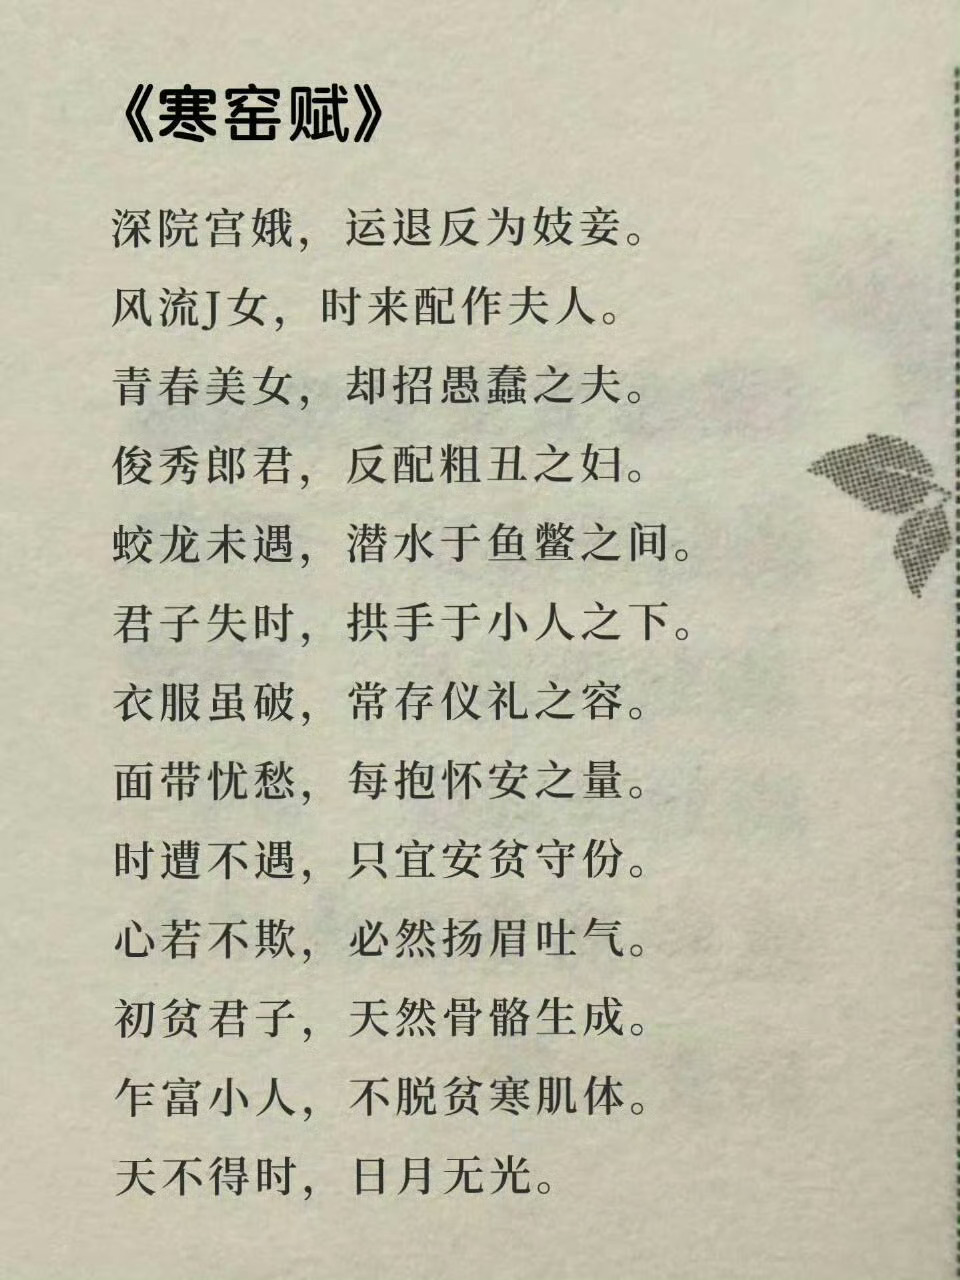 《寒窑赋》
深院宫娥，运退反为妓妾。
风流J女，时来配作夫人。
青春美女，却招愚蠢之夫。
俊秀郎君，反配粗丑之妇。
蛟龙未遇，潜水于鱼鳖之间。
君子失时，拱手于小人之下。
衣服虽破，常存仪礼之容。
面带忧愁，每抱怀安之量。
时遭不遇，只宜安贫守份。
心若不欺，必然扬眉吐气。
初贫君子，天然骨骼生成。
乍富小人，不脱贫寒肌体。
天不得时，日月无光。